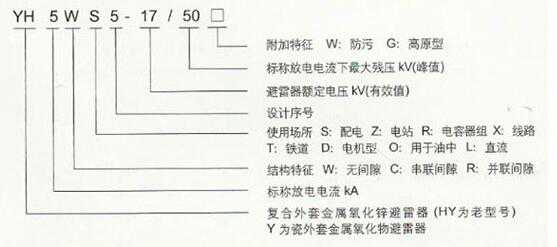 YH 5 W S 5 - 17 / 50 □
附加特征 W: 防污 G: 高原型
标称放电电流下最大残压 kV(峰值)
避雷器额定电压 kV(有效值)
设计序号
使用场所 S: 配电 Z: 电站 R: 电容器组 X: 线路
T: 铁道 D: 电机型 O: 用于油中 L: 直流
结构特征 W: 无间隙 C: 串联间隙 R: 并联间隙
标称放电电流 kA
复合外套金属氧化锌避雷器 (HY为老型号)
Y 为瓷外套金属氧化物避雷器